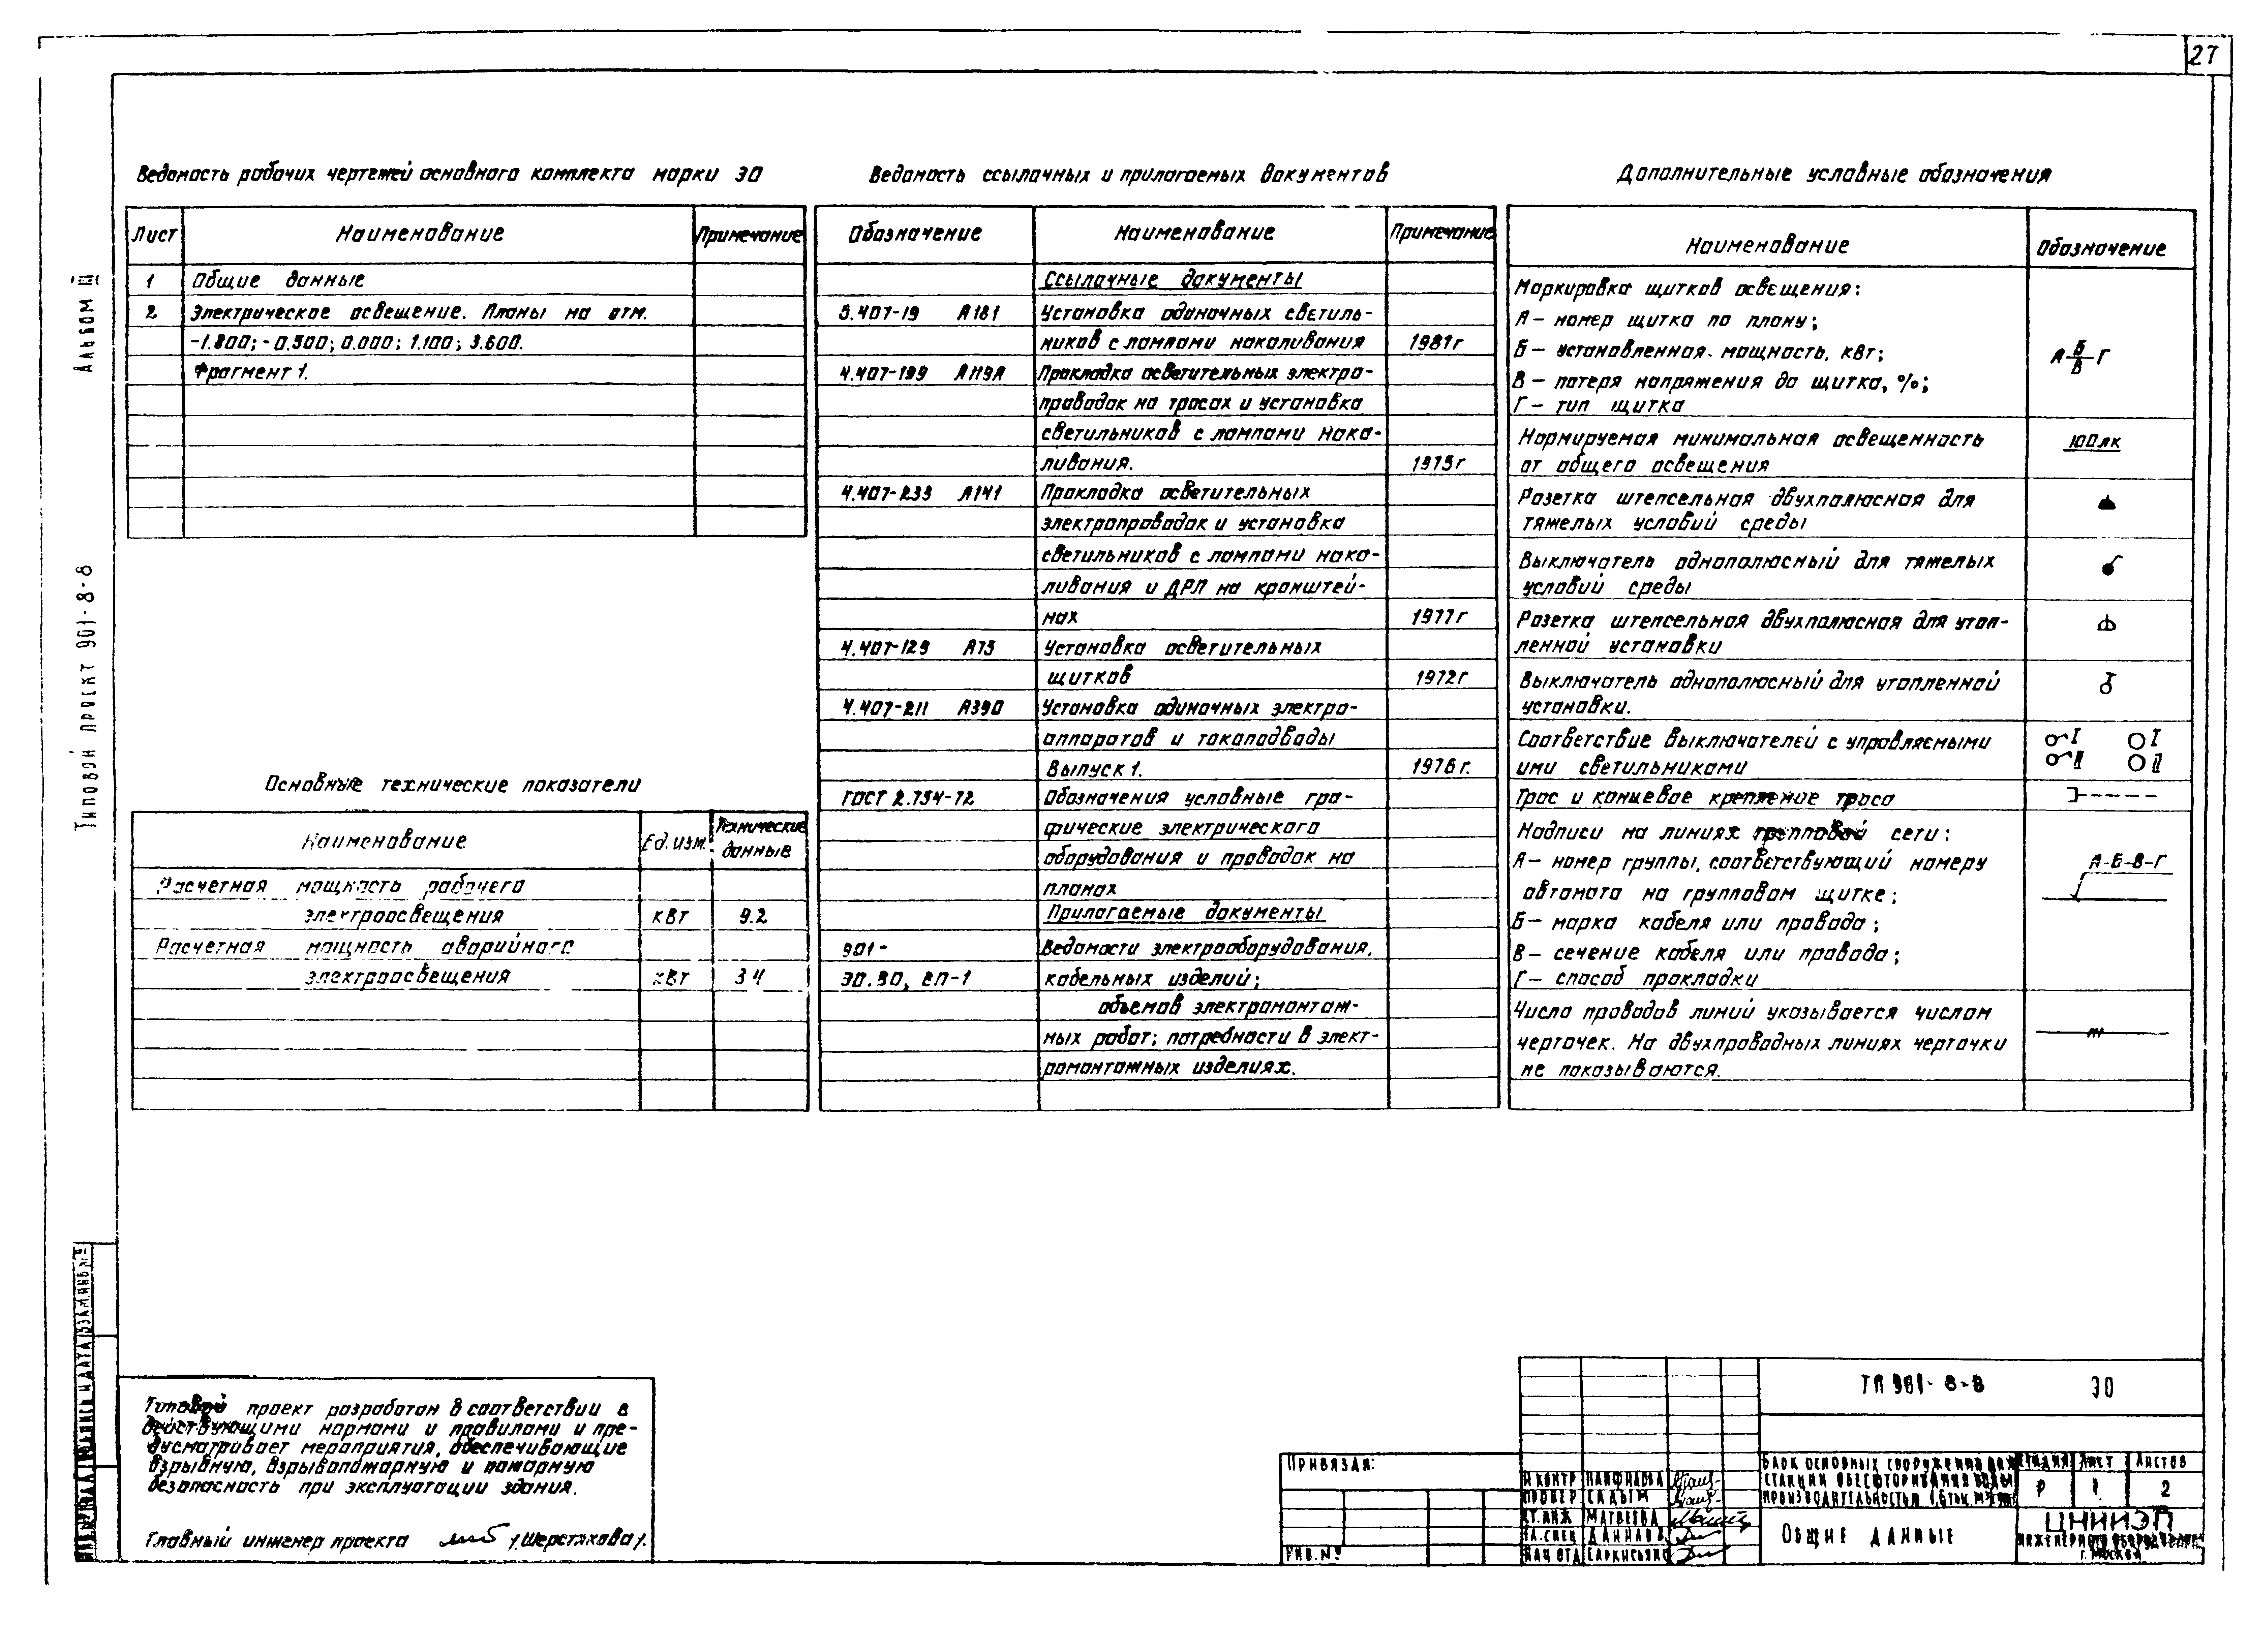 27
Альбом III
Типовой проект 901-8-8
Ведомость рабочих чертежей основного комплекта марки ЭО
Лист Наименование Примечание
1 Общие данные
2 Электрическое освещение. Планы на отм.
-1.800; -0.500; 0.000; 1.100; 3.600.
Фрагмент 1.
Основные технические показатели
Наименование Ед.изм. Технические
данные
Расчетная мощность рабочего
электроосвещения кВт 9.2
Расчетная мощность аварийного
электроосвещения кВт 3.4
Ведомость ссылочных и прилагаемых документов
Обозначение Наименование Примечание
Ссылочные документы
5.407-19 А181 Установка одиночных светиль-
ников с лампами накаливания 1981г
4.407-199 А119А Прокладка осветительных электро-
проводок на тросах и установка
светильников с лампами нака-
ливания. 1975г
4.407-233 А141 Прокладка осветительных
электропроводок и установка
светильников с лампами нака-
ливания и ДРЛ на кронштей-
нах 1977г
4.407-129 А75 Установка осветительных
щитков 1972г
4.407-211 А390 Установка одиночных электро-
аппаратов и токоподводы
Выпуск 1. 1976г.
ГОСТ 2.754-72 Обозначения условные гра-
фические электрического
оборудования и проводок на
планах
Прилагаемые документы
901- Ведомости электрооборудования,
ЭО.ВО, ВП-1 кабельных изделий;
объемов электромонтаж-
ных работ; потребности в элект-
ромонтажных изделиях.
Дополнительные условные обозначения
Наименование Обозначение
Маркировка щитков освещения:
А – номер щитка по плану;
Б – установленная мощность, кВт;
А Б/В Г
В – потеря напряжения до щитка, %;
Г – тип щитка
Нормируемая минимальная освещенность 100лк
от общего освещения
Розетка штепсельная двухполюсная для
тяжелых условий среды
Выключатель однополюсный для тяжелых
условий среды
Розетка штепсельная двухполюсная для утоп-
ленной установки
Выключатель однополюсный для утопленной
установки.
Соответствие выключателей с управляемыми I I
ими светильниками II II
Трос и концевое крепление троса
Надписи на линиях групповой сети:
А – номер группы, соответствующий номеру А-Б-В-Г
автомата на групповом щитке;
Б – марка кабеля или провода;
В – сечение кабеля или провода;
Г – способ прокладки
Число проводов линий указывается числом
черточек. На двухпроводных линиях черточки
не показываются.
Типовой проект разработан в соответствии с
действующими нормами и правилами и пре-
дусматривает мероприятия, обеспечивающие
взрывную, взрывопожарную и пожарную
безопасность при эксплуатации здания.
Главный инженер проекта /Шерстякова/.
Привязан:
Инв.№
Н.контр
Провер. Садым
Ст.инж Матвеева
Гл.спец Данилов
Нач отд Саркисьянс
ТП 901-8-8 ЭО
Блок основных сооружений для
станции обесфторивания воды
производительностью 1,6 тыс. м³/сут
Стадия Лист Листов
Р 1 2
Общие данные
ЦНИИЭП
инженерного оборудования
г. Москва
Взам.инв.№
Подпись и дата